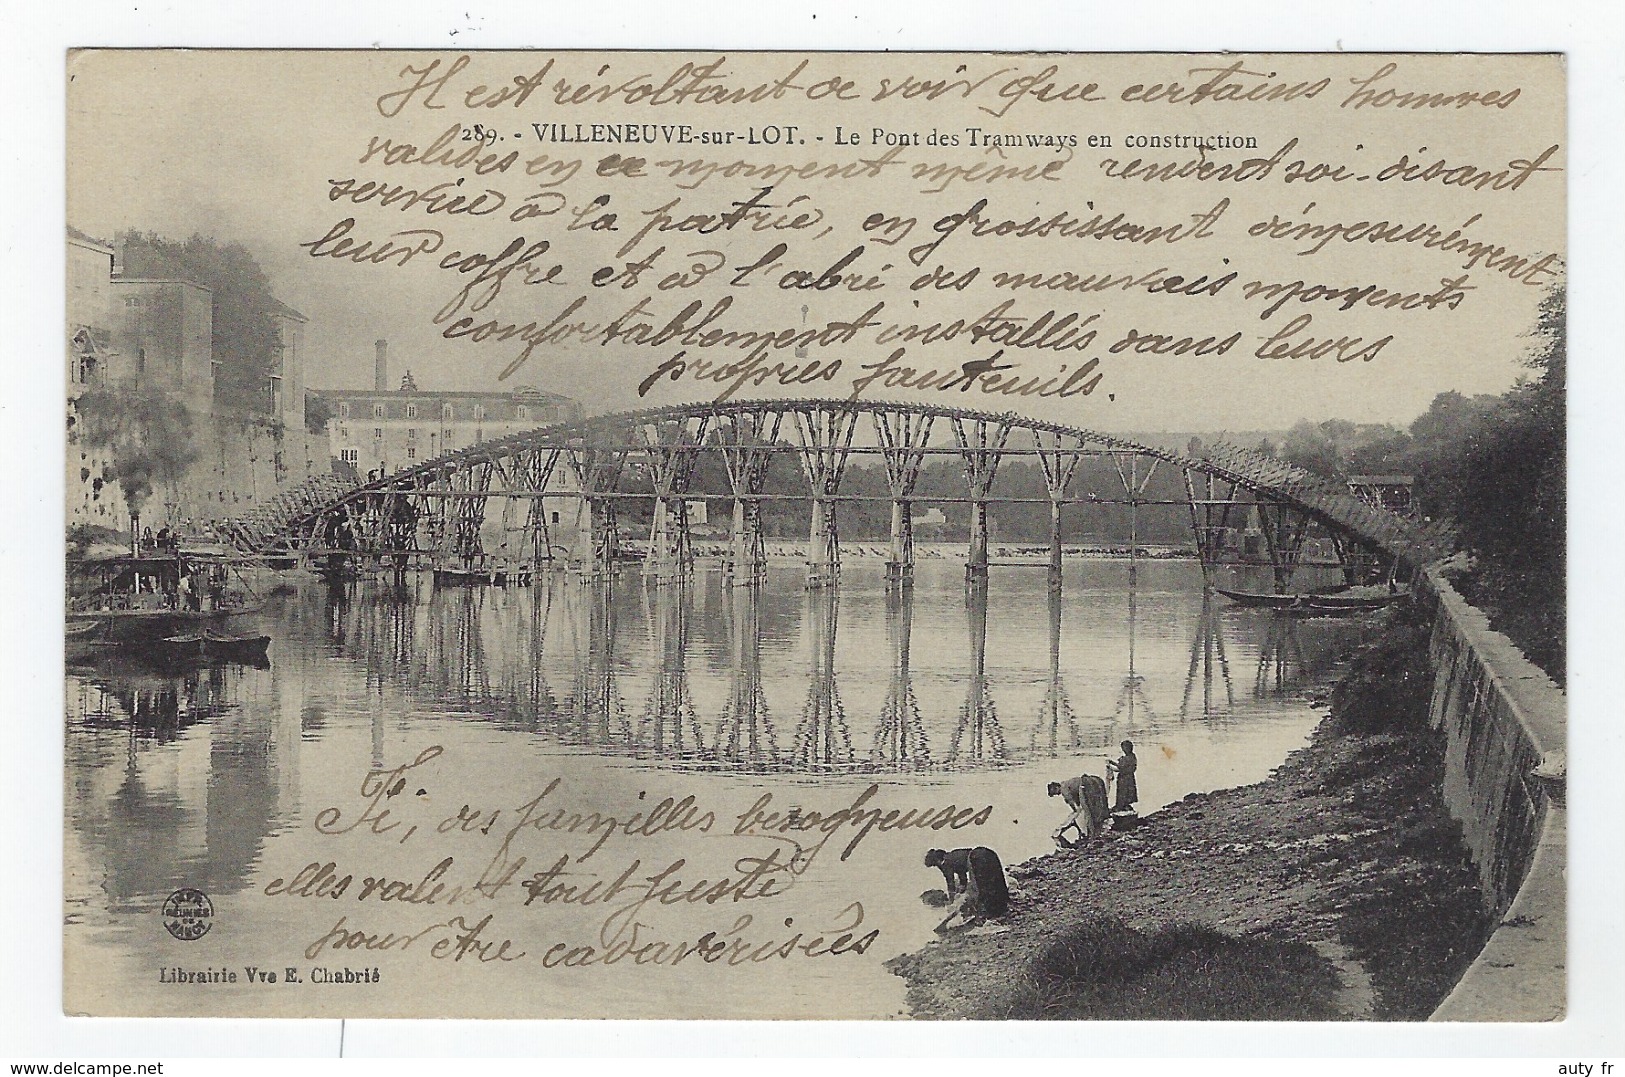 Il est révoltant de voir que certains hommes
289. - VILLENEUVE-sur-LOT. - Le Pont des Tramways en construction
valides en ce moment même rendent soi-disant
service à la patrie, en grossissant démesurément
leur coffre et à l'abri des mauvais moments
confortablement installés dans leurs
propres fauteuils.
Fi, des familles besogneuses.
elles valent tout juste
pour être cadavérisées
IMPR. RÉUNIES DE NANCY
Librairie Vve E. Chabrié
www.delcampe.net
auty fr